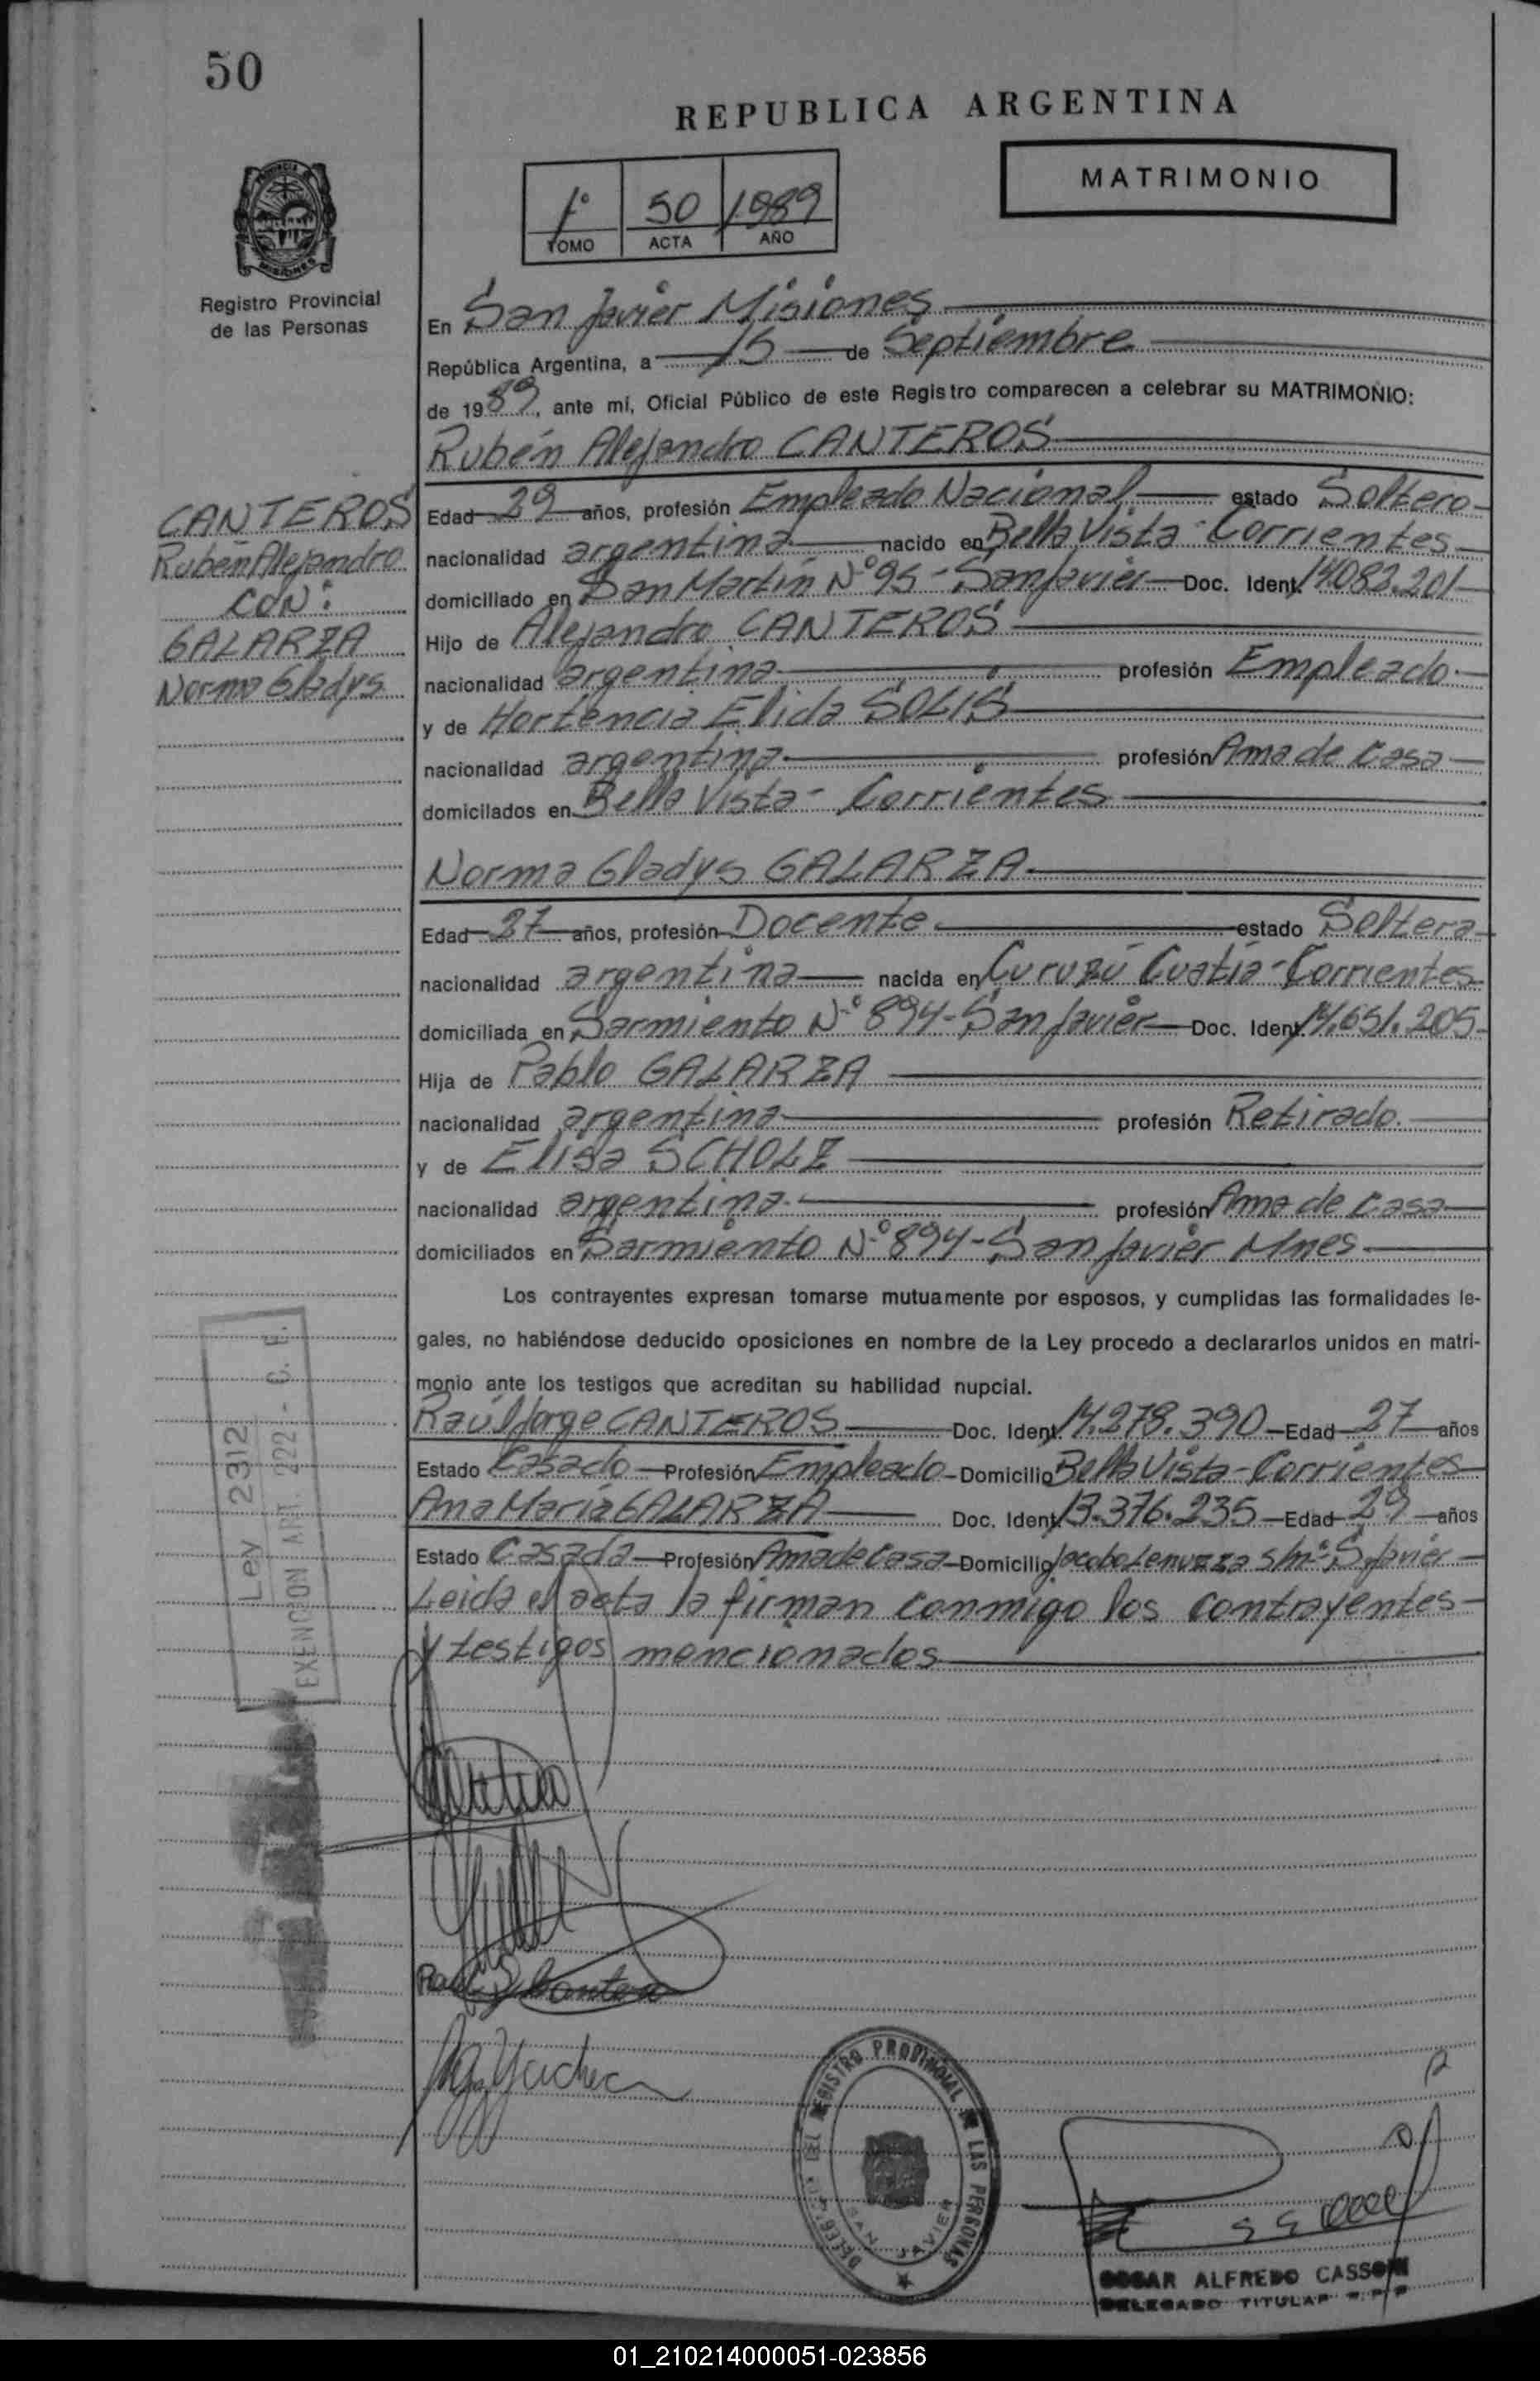 50
REPUBLICA ARGENTINA
MATRIMONIO
1º 50 1989
TOMO ACTA AÑO
PROVINCIA DE
MISIONES
Registro Provincial
de las Personas
En San Javier Misiones
República Argentina, a 15 de Septiembre
de 1989, ante mí, Oficial Público de este Registro comparecen a celebrar su MATRIMONIO:
Rubén Alejandro CANTEROS
CANTEROS
Ruben Alejandro
CON:
GALARZA
Norma Gladys
Edad 29 años, profesión Empleado Nacional estado Soltero
nacionalidad argentina nacido en Bella Vista - Corrientes
domiciliado en San Martín Nº 95 - San Javier Doc. Ident. 14.083.201
Hijo de Alejandro CANTEROS
nacionalidad argentina profesión Empleado
y de Hortencia Elida SOLIS
nacionalidad argentina profesión Ama de Casa
domicilados en Bella Vista - Corrientes
Norma Gladys GALARZA
Edad 27 años, profesión Docente estado Soltera
nacionalidad argentina nacida en Curuzú Cuatía - Corrientes
domiciliada en Sarmiento Nº 894 - San Javier Doc. Ident. 14.651.205
Hija de Pablo GALARZA
nacionalidad argentina profesión Retirado
y de Elisa SCHOLZ
nacionalidad argentina profesión Ama de Casa
domiciliados en Sarmiento Nº 894 - San Javier Mnes
Los contrayentes expresan tomarse mutuamente por esposos, y cumplidas las formalidades le-
gales, no habiéndose deducido oposiciones en nombre de la Ley procedo a declararlos unidos en matri-
monio ante los testigos que acreditan su habilidad nupcial.
Raúl Jorge CANTEROS Doc. Ident. 14.278.390 Edad 27 años
Estado Casado Profesión Empleado Domicilio Bella Vista - Corrientes
Ana María GALARZA Doc. Ident. 13.376.235 Edad 29 años
Estado Casada Profesión Ama de Casa Domicilio Jacobo Lenuzza s/nº S. Javier
Leida el acta la firman conmigo los contrayentes
y testigos mencionados
Ley 2312
EXENCION ART. 222 - C. F.
DELEGACION DEL REGISTRO PROVINCIAL DE LAS PERSONAS
SAN JAVIER
OSCAR ALFREDO CASSONI
DELEGADO TITULAR R.P.P
01_210214000051-023856